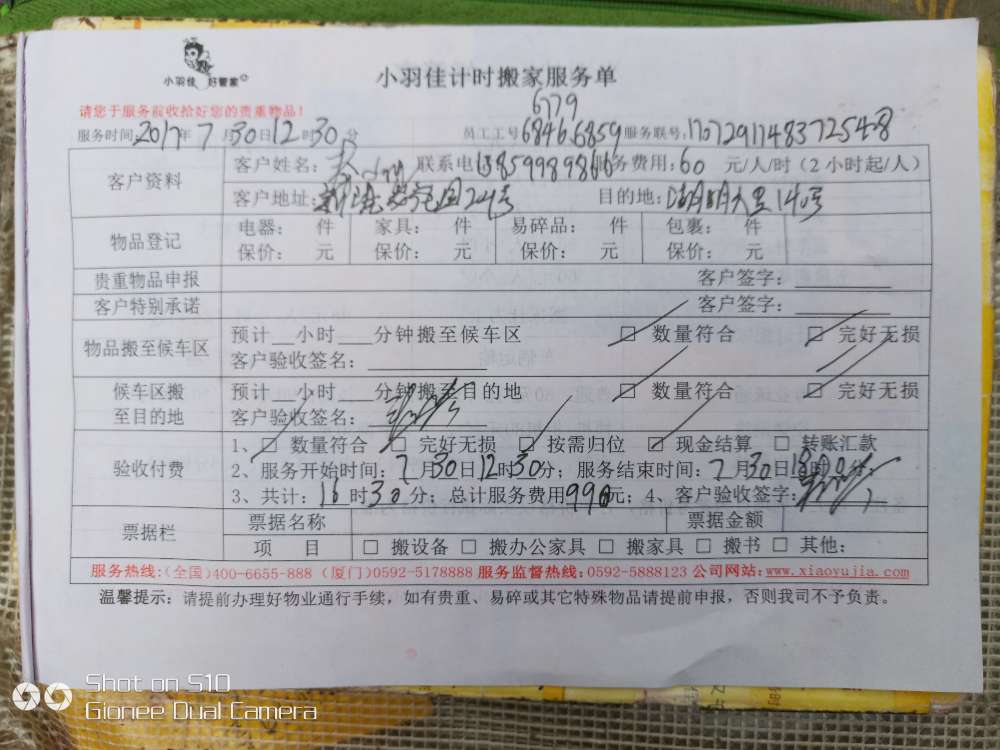 小羽佳 好管家
小羽佳计时搬家服务单
请您于服务前收拾好您的贵重物品！
6779
服务时间:2017年7月30日12时30分 员工工号6846.6859服务联号:170729114837254-8
客户资料 客户姓名: 联系电13859989866务费用:60元/人/时(2小时起/人)
客户地址: 24号 目的地: 里140号
物品登记 电器: 件 家具: 件 易碎品: 件 包裹: 件
保价: 元 保价: 元 保价: 元 保价: 元
贵重物品申报 客户签字:
客户特别承诺 客户签字:
物品搬至候车区 预计__小时___分钟搬至候车区 □ 数量符合 □ 完好无损
客户验收签名:
候车区搬至目的地 预计__小时___分钟搬至目的地 □ 数量符合 □ 完好无损
客户验收签名:
验收付费 1、□ 数量符合 □ 完好无损 □ 按需归位 □ 现金结算 □ 转账汇款
2、服务开始时间:7月30日12时30分; 服务结束时间:7月30日18时00分;
3、共计:16时30分; 总计服务费用990元; 4、客户验收签字:
票据栏 票据名称 票据金额
项 目 □ 搬设备 □ 搬办公家具 □ 搬家具 □ 搬书 □ 其他:
服务热线:(全国)400-6655-888 (厦门)0592-5178888 服务监督热线:0592-5888123 公司网站:www.xiaoyujia.com
温馨提示: 请提前办理好物业通行手续, 如有贵重、易碎或其它特殊物品请提前申报, 否则我司不予负责。
Shot on S10
Gionee Dual Camera